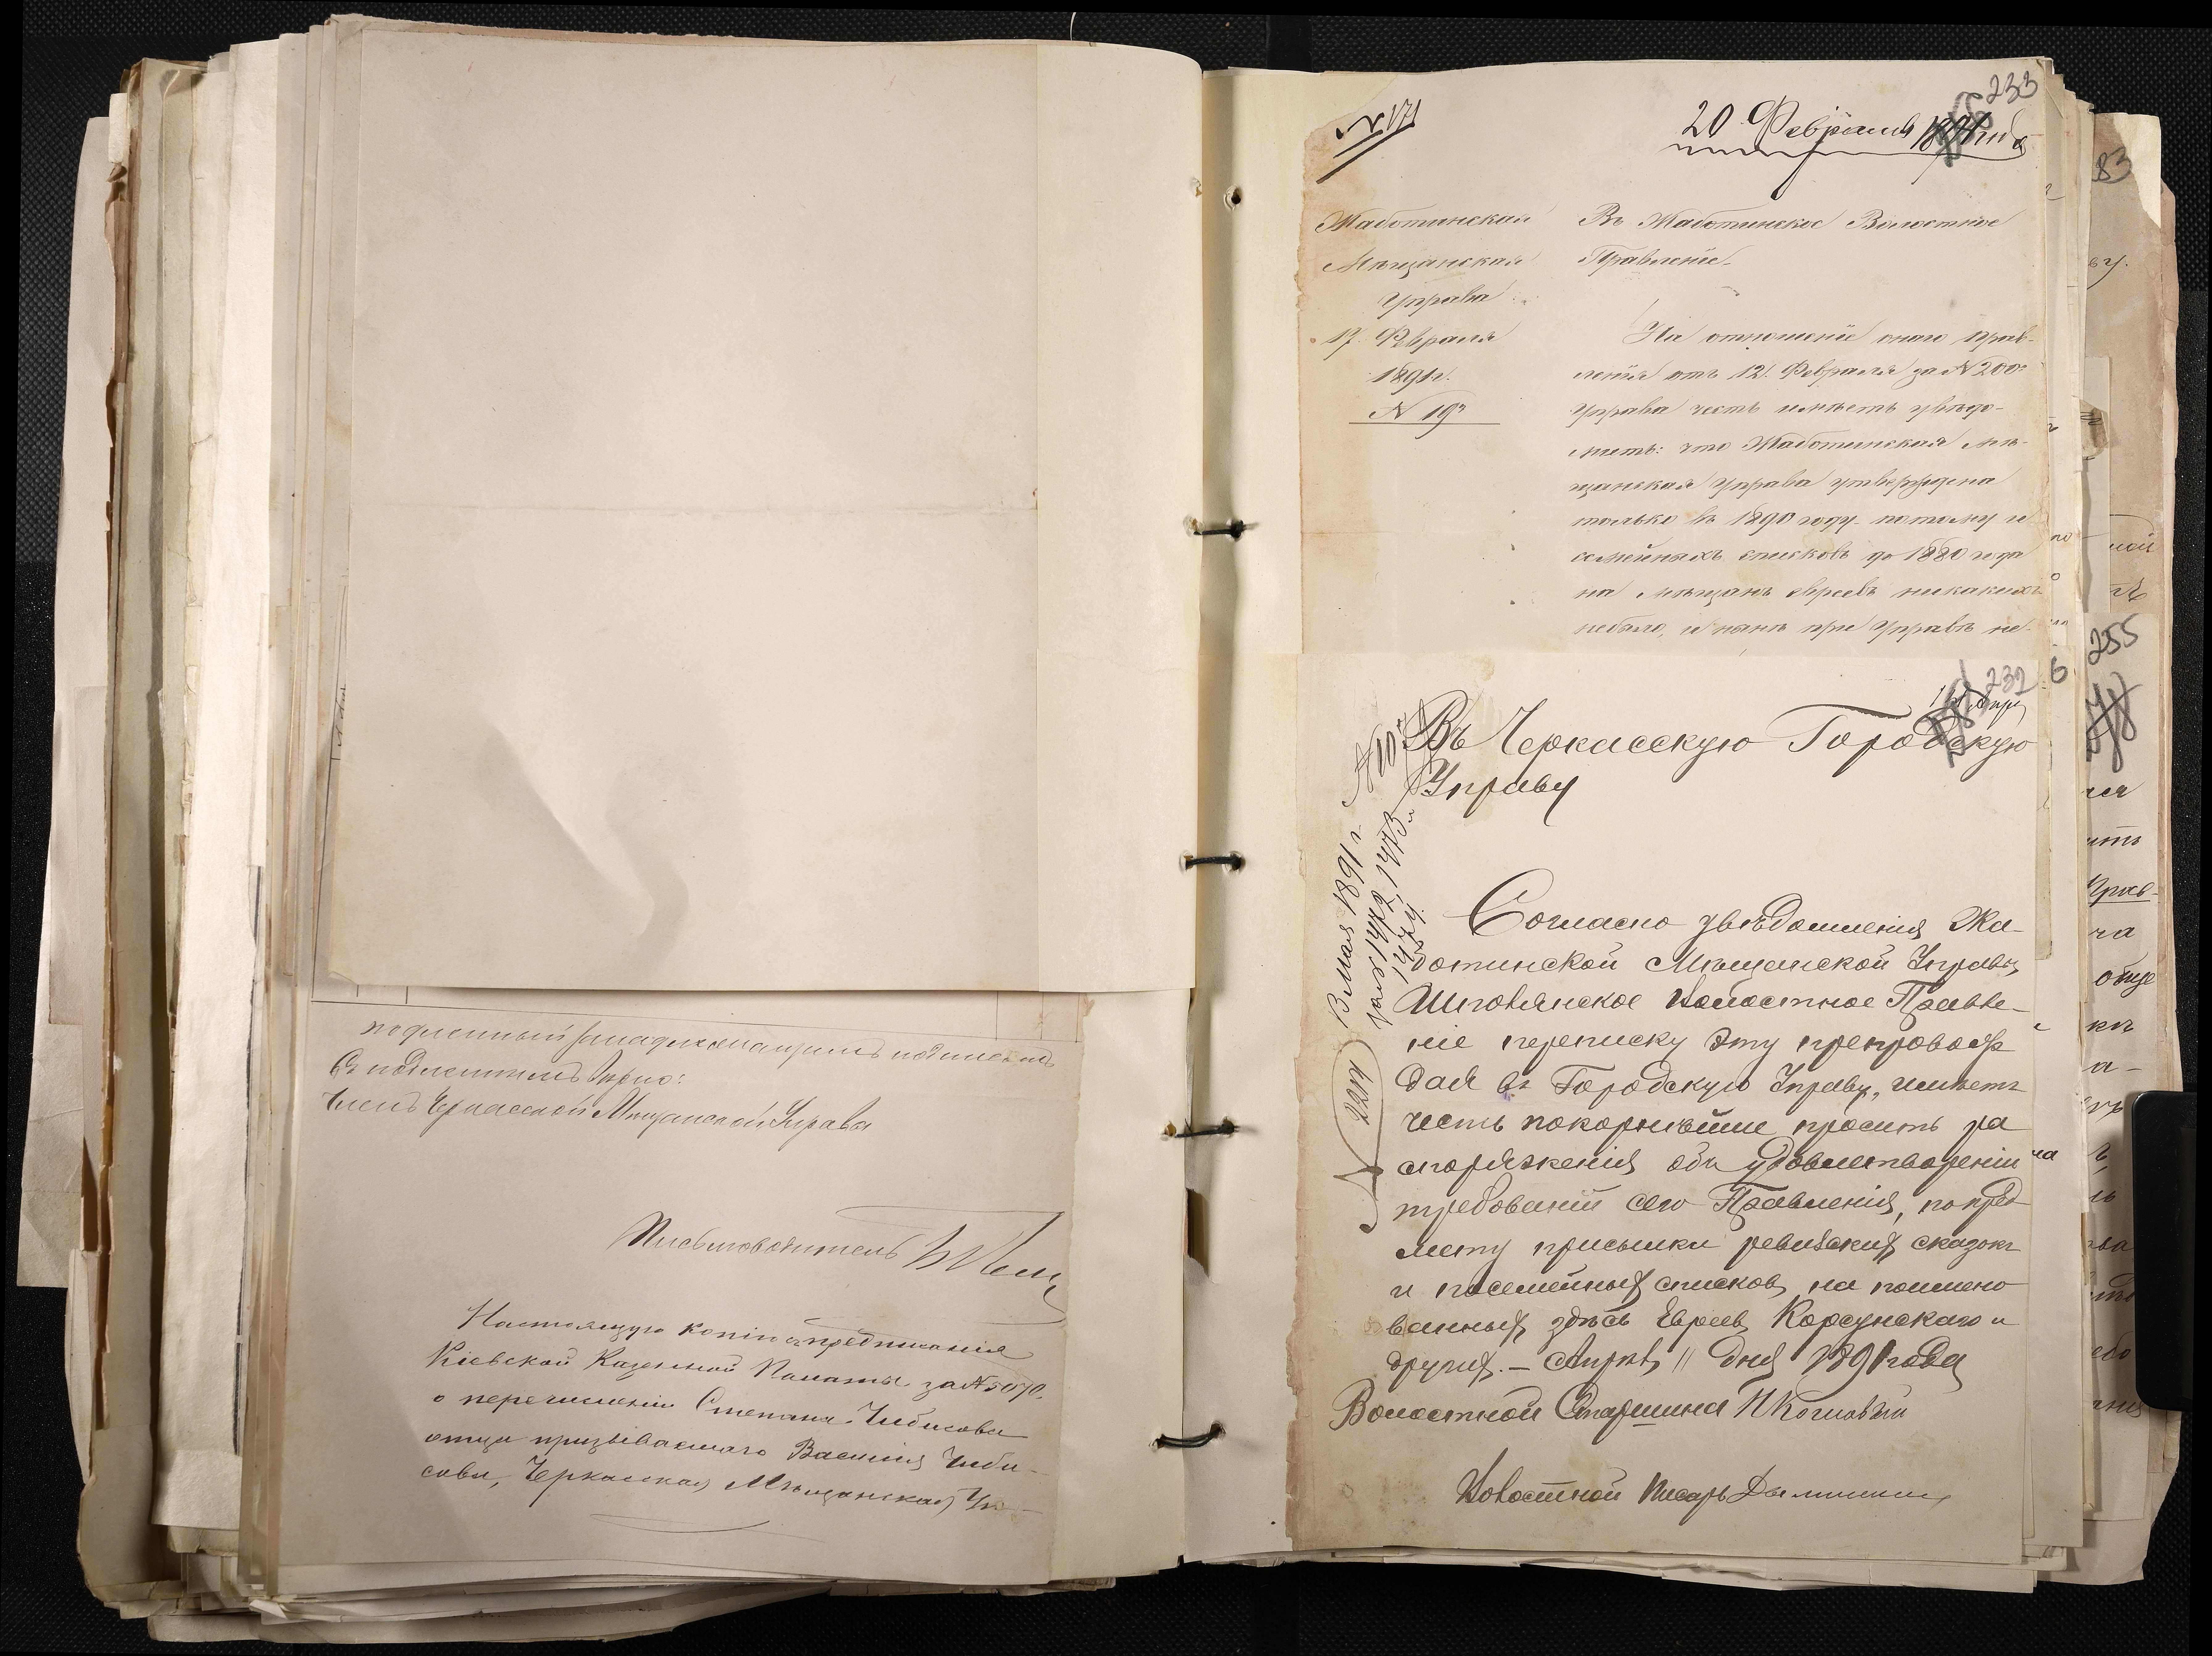 подлинный за надлежащимъ подписомъ
Съ подлиннымъ вѣрно:
Членъ Черкасской Мѣщанской Управы
Письмоводитель
Настоящую копію съ предписанія
Кіевской Казенной Палаты за № 5070.
о перечисленіи Степана Чибисова
отца призываемаго Василія Чиби-
сова, Черкасская Мѣщанская Уп-
233
№ 171
20 Февраля 1891 года
Жаботинская
Мѣщанская
Управа
17 Февраля
1891 г.
№ 19
Въ Жаботинское Волостное
Правленіе
На отношеніе онаго прав-
ленія отъ 12 Февраля за № 200
Управа честь имѣетъ увѣдо-
мить: что Жаботинская мѣ-
щанская Управа утверждена
только въ 1890 году потому и
семейныхъ списковъ до 1880 года
на мѣщанъ евреевъ никакихъ
небыло, и нынѣ при Управѣ не
232
Въ Черкасскую Городскую
Управу
8 Мая 1891 г.
№ 2214
Согласно увѣдомленія Жа-
ботинской Мѣщанской Управы,
Волостное Правле-
ніе переписку эту препровож
дая въ Городскую Управу, имѣетъ
честь покорнѣйше просить ра
споряженія объ удовлетвореніи
требованій сего Правленія, по пред
мету присылки ревизскихъ сказокъ
и посемейныхъ списковъ на поимено
ванныхъ здѣсь Евреевъ Корсунскаго и
другихъ. – Апрѣля 11 дня 1891 года
Волостной Старшина
Волостной Писарь
83
255